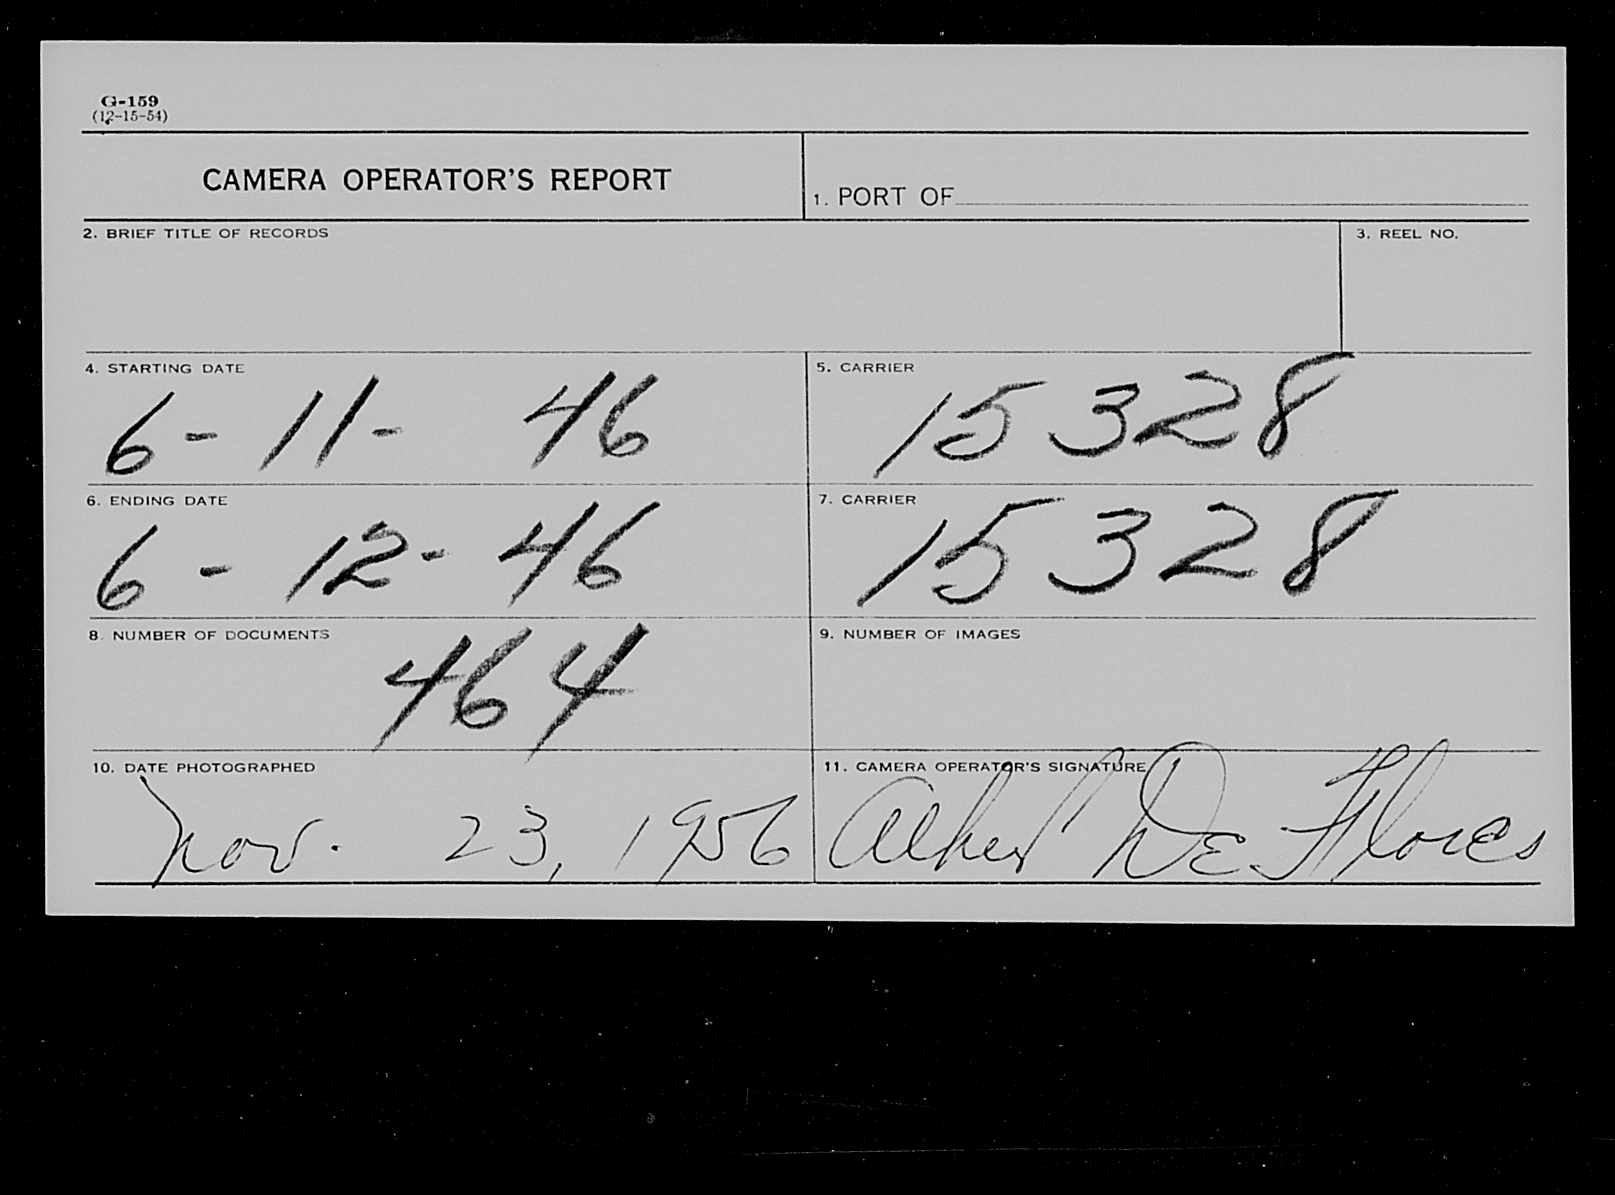 G-159
(12-15-54)
CAMERA OPERATOR'S REPORT
1. PORT OF
2. BRIEF TITLE OF RECORDS
3. REEL NO.
4. STARTING DATE
6- 11- 46
5. CARRIER
15328
6. ENDING DATE
6- 12- 46
7. CARRIER
15328
8. NUMBER OF DOCUMENTS
464
9. NUMBER OF IMAGES
10. DATE PHOTOGRAPHED
Nov. 23, 1956
11. CAMERA OPERATOR'S SIGNATURE
Albert De Flores